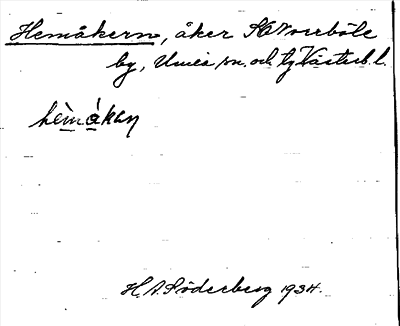 Hemåkern, åker St. Norrböle
by, Umeå sn. och tg Västerb. l.
hèmákəṇ
H. A. Söderberg 1934.